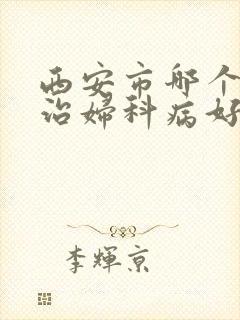 西安市哪个
治妇科病好
李辉京